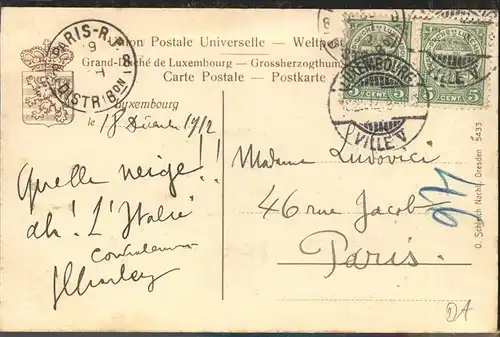 Union Postale Universelle — Weltpost
Grand-Duché de Luxembourg — Grossherzogthum
Carte Postale — Postkarte
PARIS-R.P.
DISTRIBON
LUXEMBOURG
VILLE V
VILLE V
5 CENT. 5
5 CENT. 5
Luxembourg
le 18 1912
Quelle neige!!
ah! L'Italie
Madame Ludovici
46 rue Jacob
Paris.
O. Schleich Nachf., Dresden 5433
DA